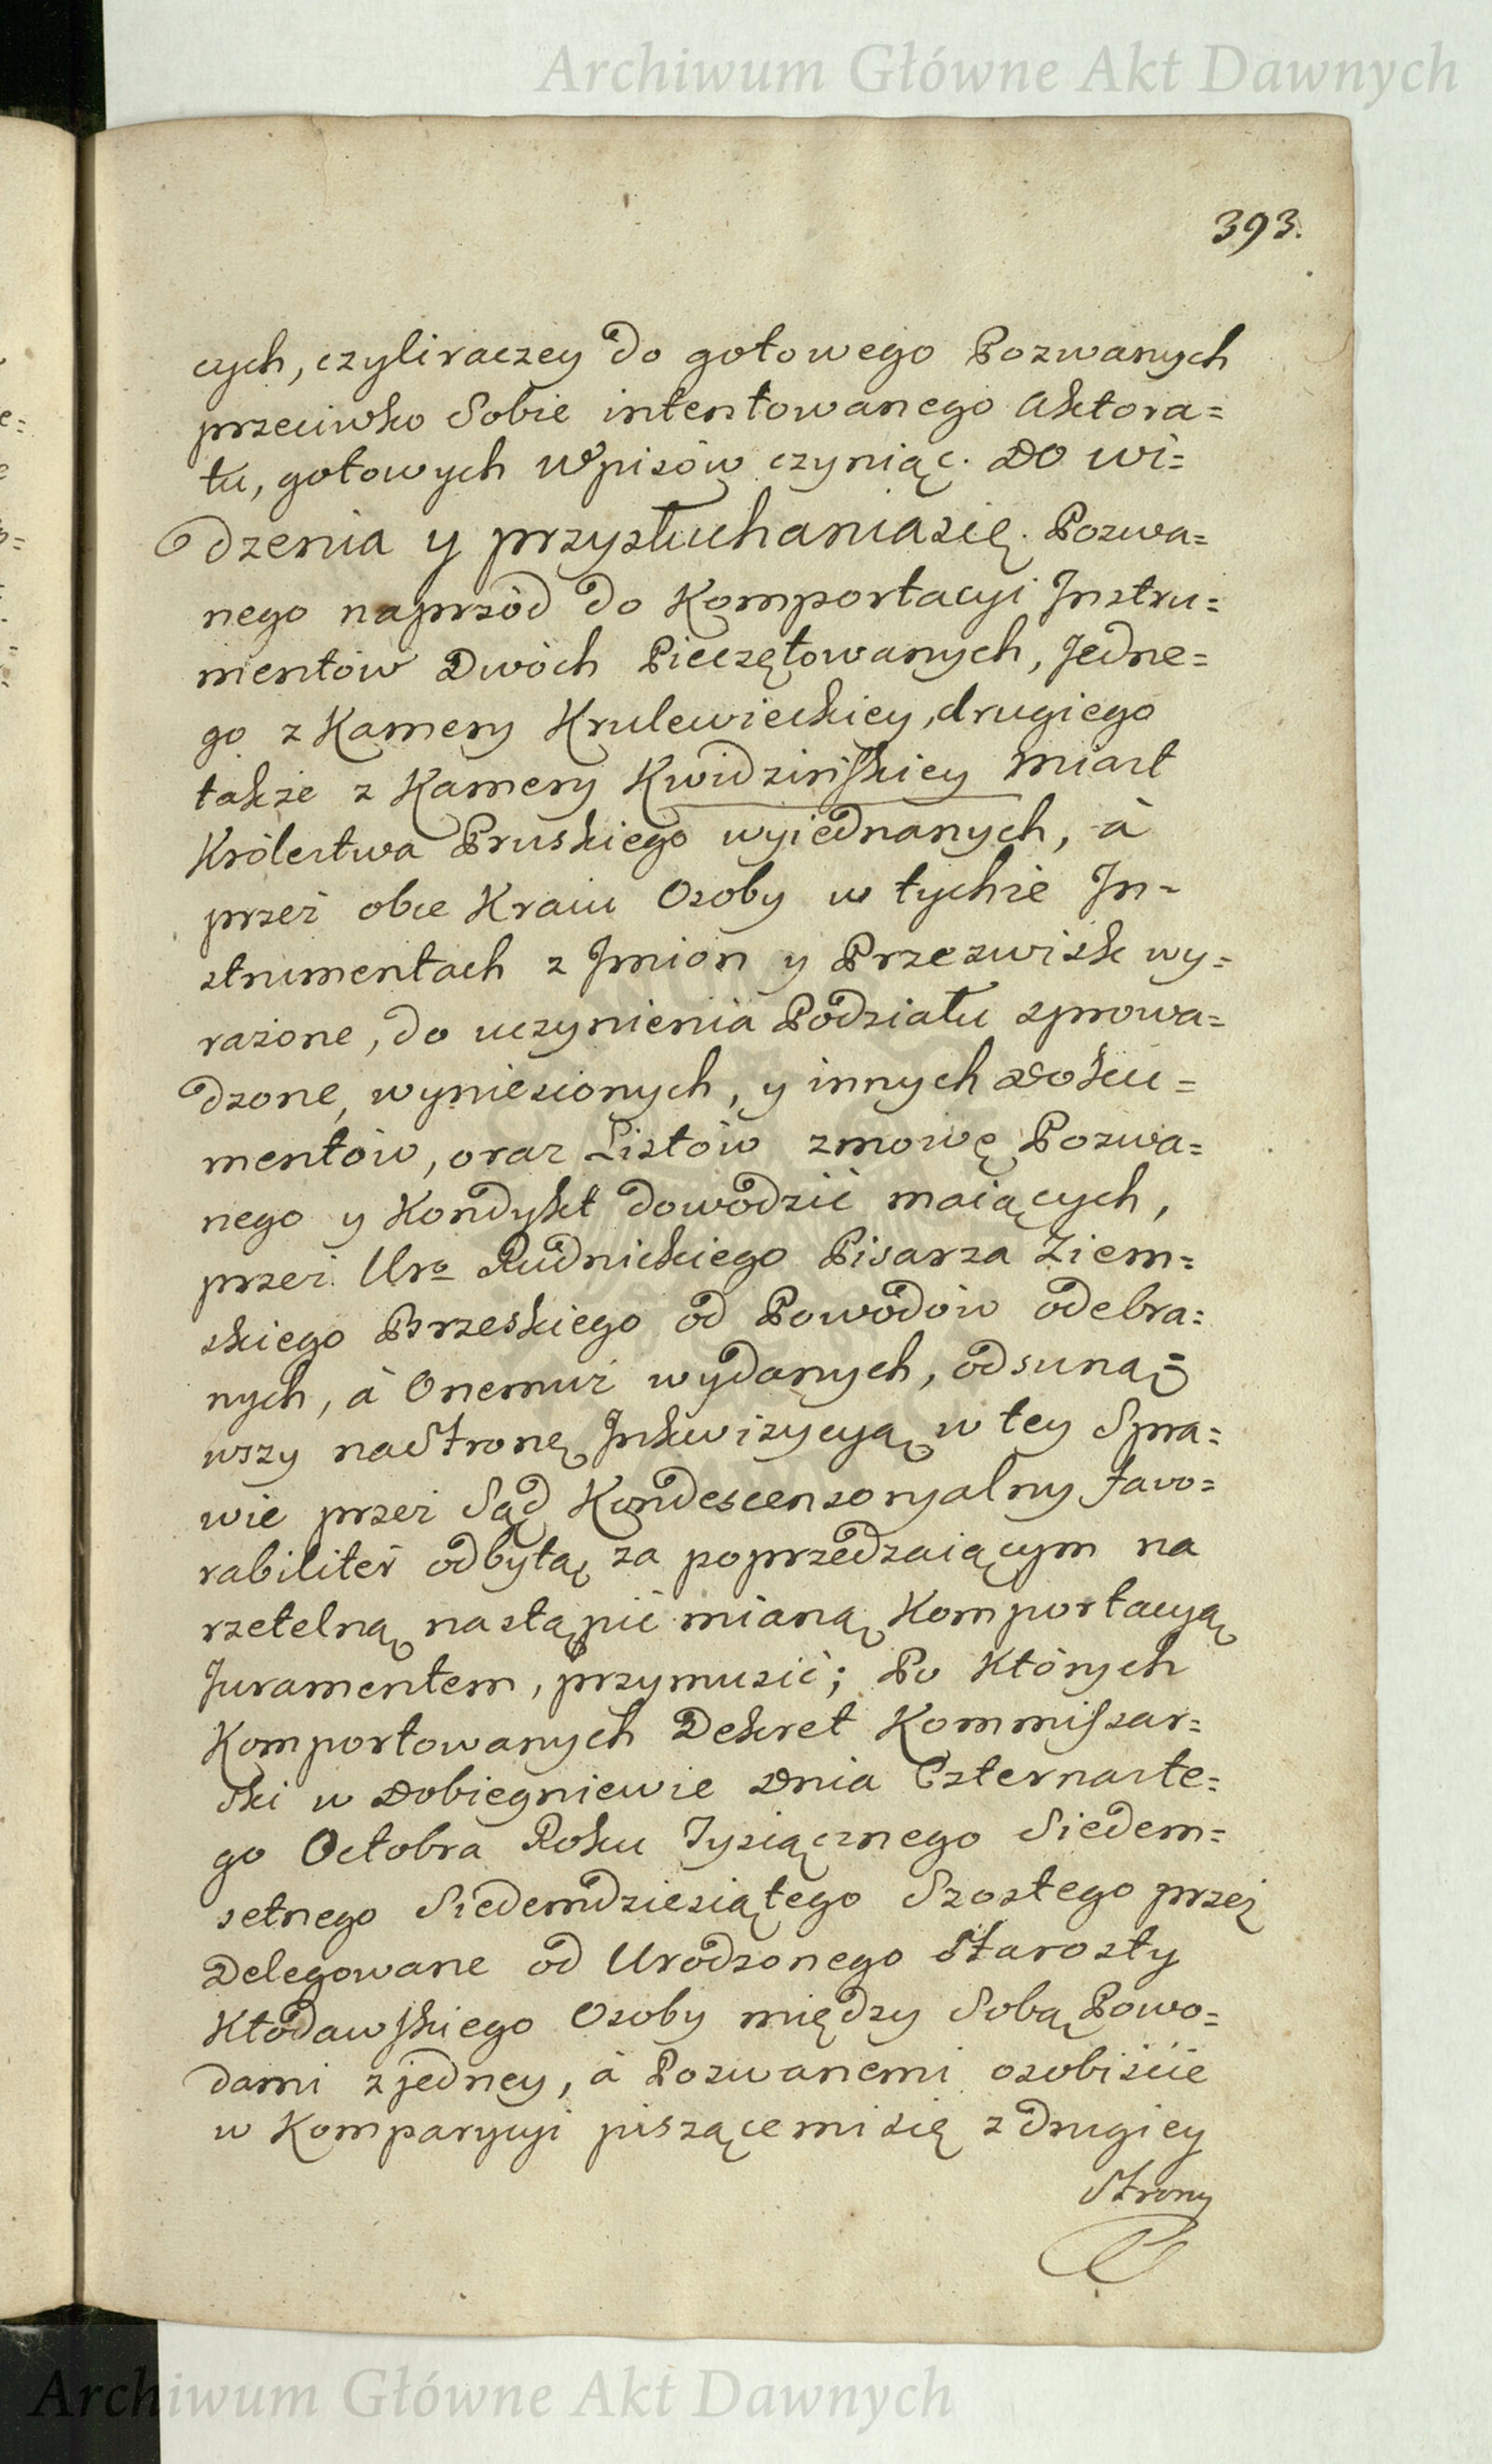 Archiwum Główne Akt Dawnych
393.
cych, czyliraczey do gotowego Pozwanych
przeciwko Sobie intentowanego Aktora=
tu, gotowych Wpisów czyniąc. Do wi=
dzenia y przysłuchaniasię. Pozwa=
nego naprzód do Komportacyi Instru=
mentów Dwóch Pieczętowanych, Jedne=
go z Kamery Krulewieckiey, drugiego
także z Kamery Kwidzińskiey Miast
Królestwa Pruskiego wyiednanych, à
przez obce Kraiu Osoby w tychże In=
strumentach z Imion y Przezwisk wy=
rażone, do uczynienia Podziału sprowa=
dzone, wyniesionych, y innych Doku=
mentów, oraz Listów zmowę Pozwa=
nego y Kondykt dowodzić maiących,
przez Uro Rudnickiego Pisarza Ziem=
skiego Brzeskiego od Powodów odebra=
nych, à Onemuż wydanych, odsuną=
wszy naStronę Inkwizycyą w tey Spra=
wie przez Sąd Kondescensoryalny favo=
rabiliter odbytą za poprzedzaiącym na
rzetelną nastąpić mianą Komportacyą
Juramentem, przymusić; Po Których
Komportowanych Dekret Kommissar=
ski w Dobiegniewie Dnia Czternaste=
go Octobra Roku Tysiącznego Siedem=
setnego Siedemdziesiątego Szostego przez
Delegowane od Urodzonego Starosty
Kłodawskiego Osoby między Sobą Powo=
dami z jedney, à Pozwanemi osobiście
w Komparycyi piszącemisię z drugiey
Strony
Archiwum Główne Akt Dawnych